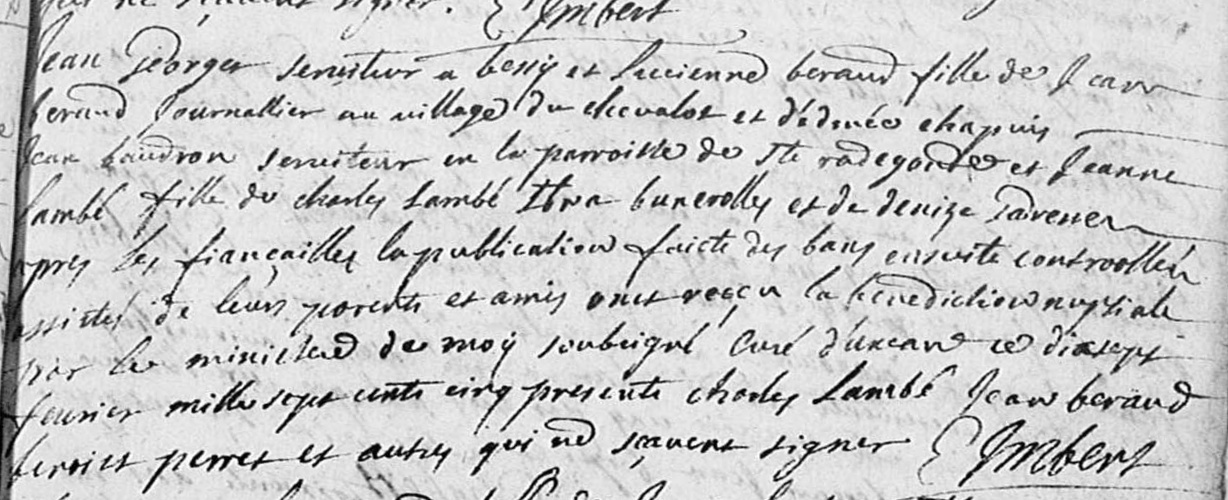 qui ne sçavent signer. Imbert
Jean Georger serviteur a bessy et Lucienne beraud fille de Jean
beraud Journallier au village du chevalot et d'edmée chapuis
Jean baudron serviteur en la parroisse de Ste radegonde et Jeanne
Lambé fille de charles Lambé et de denize
apres les fiançailles la publication faicte des bans ensuite controollés
assistés de leurs parents et amis ont reçeu la benediction nuptiale
par le ministere de moy soubsigné Curé ce dixsept
fevrier mille sept cents cinq presents charles Lambé Jean beraud
benoist perret et autres qui ne sçavent signer Imbert